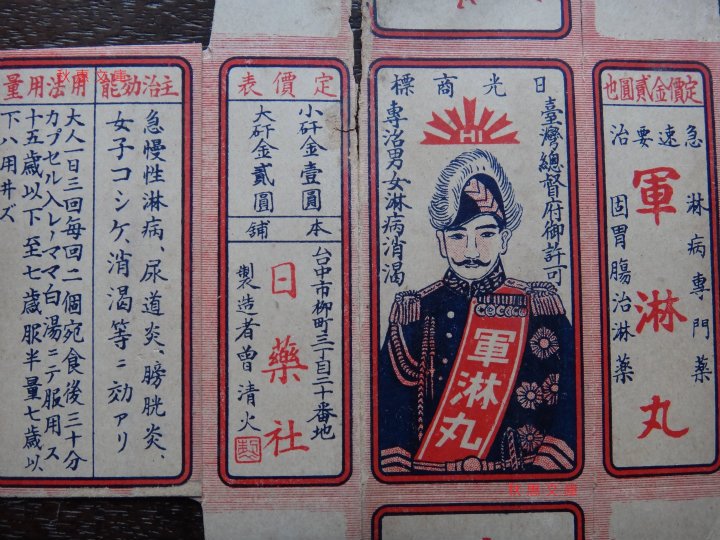 定價金貳圓也
急速要治
淋病專門藥
軍淋丸
固胃腸治淋藥
日光商標
臺灣總督府御許可
HI
專治男女淋病消渴
軍淋丸
定價表
小矸金壹圓
大矸金貳圓
本舖
台中市柳町三丁目二十番地
日藥社
製造者曾清火
主治効能
急慢性淋病、尿道炎、膀胱炎、
女子コシケ、消渴等ニ効アリ
用法用量
大人一日三回每回二個宛食後三十分
カプセル入レノママ白湯ニテ服用ス
十五歲以下至七歲服半量七歲以
下ハ用井ズ